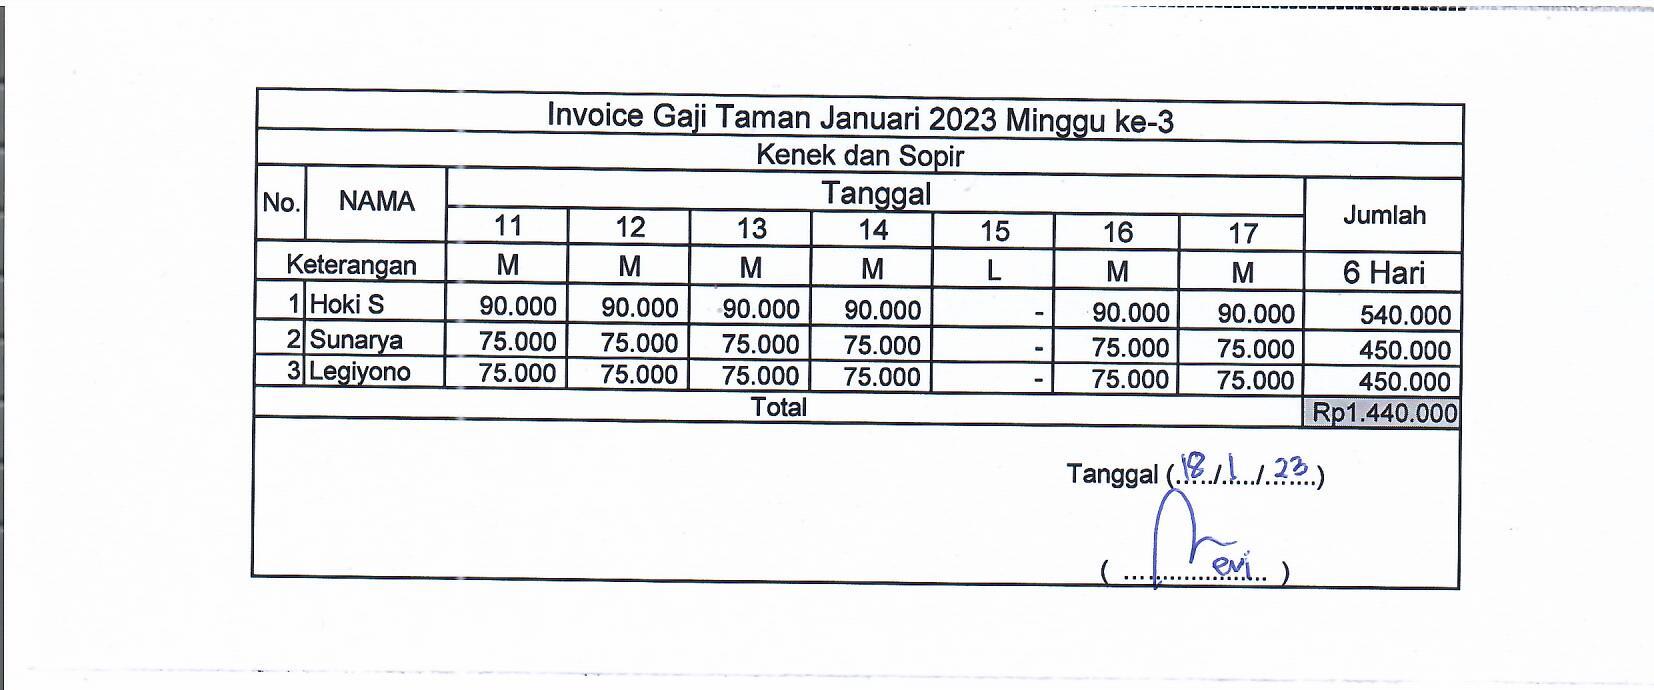 Invoice Gaji Taman Januari 2023 Minggu ke-3
Kenek dan Sopir
No. NAMA Tanggal Jumlah
11 12 13 14 15 16 17
Keterangan M M M M L M M 6 Hari
1 Hoki S 90.000 90.000 90.000 90.000 - 90.000 90.000 540.000
2 Sunarya 75.000 75.000 75.000 75.000 - 75.000 75.000 450.000
3 Legiyono 75.000 75.000 75.000 75.000 - 75.000 75.000 450.000
Total Rp1.440.000
Tanggal (18/1/23)